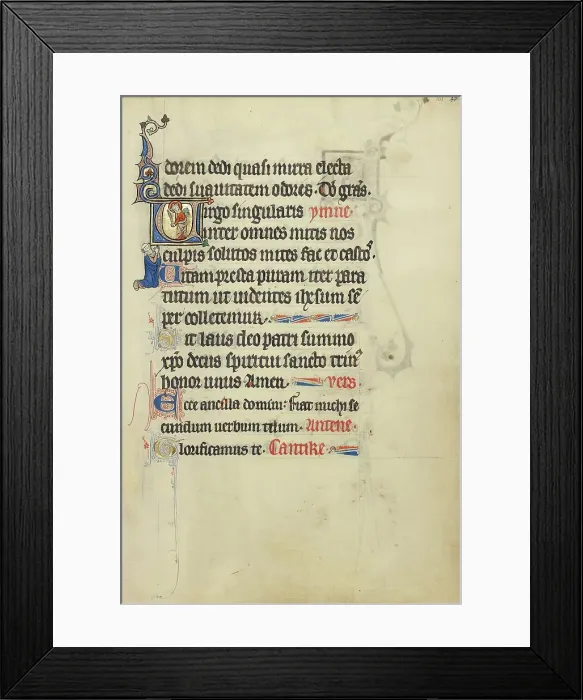 dorem dedi quasi mirra electa
dedi suauitatem odores. Do gras.
Uirgo singularis ymne.
inter omnes mitis nos
culpis solutos mites fac et casto.
Uitam presta puram iter para
tutum ut uidentes ihesum se
per colletemur.
Sit laus deo patri summo
xpo decus spiritui sancto trin
honor unus. Amen. vers
Ecce ancilla domini: fiat michi se
cundum uerbum tuum. Antene.
Glorificamus te. Cantike.